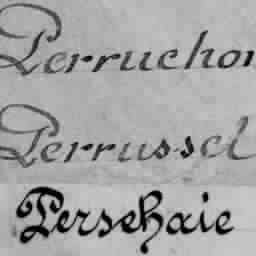 Perruchon
Perrussel
Persehaie